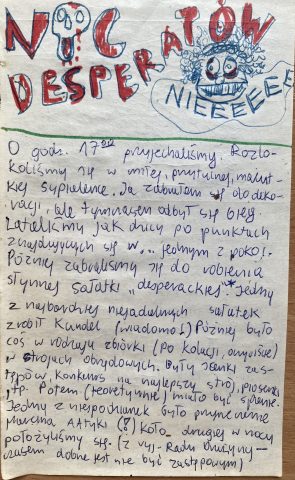 NOC
DESPERATÓW
NIEEEEEE
O godz. 17⁰⁰ przyjechaliśmy. Rozlo-
kowaliśmy się w miłej, przytulnej, malut-
kiej sypialence. Ja zabrałam się do deko-
racji, ale tymczasem odbył się bieg.
Lataliśmy jak dzicy po punktach
znajdujących się w... jednym z pokoi.
Później zabraliśmy się do robienia
słynnej sałatki „desperackiej". Jedną
z najbardziej niejadalnych sałatek
zrobił Kundel (wiadomo!) Później było
coś w rodzaju zbiórki (po kolacji, oczywiście)
w strojach obrzydowych. Były scenki zas-
tępów, konkurs na najlepszy strój, piosenki
itp. Potem (teoretycznie) miało być spanie.
Jedną z niespodzianek było przyniesienie
(8) koło drugiej w nocy
położyliśmy się. (z wyj. Rady Drużyny -
czasem dobrze jest nie być zastępowym)